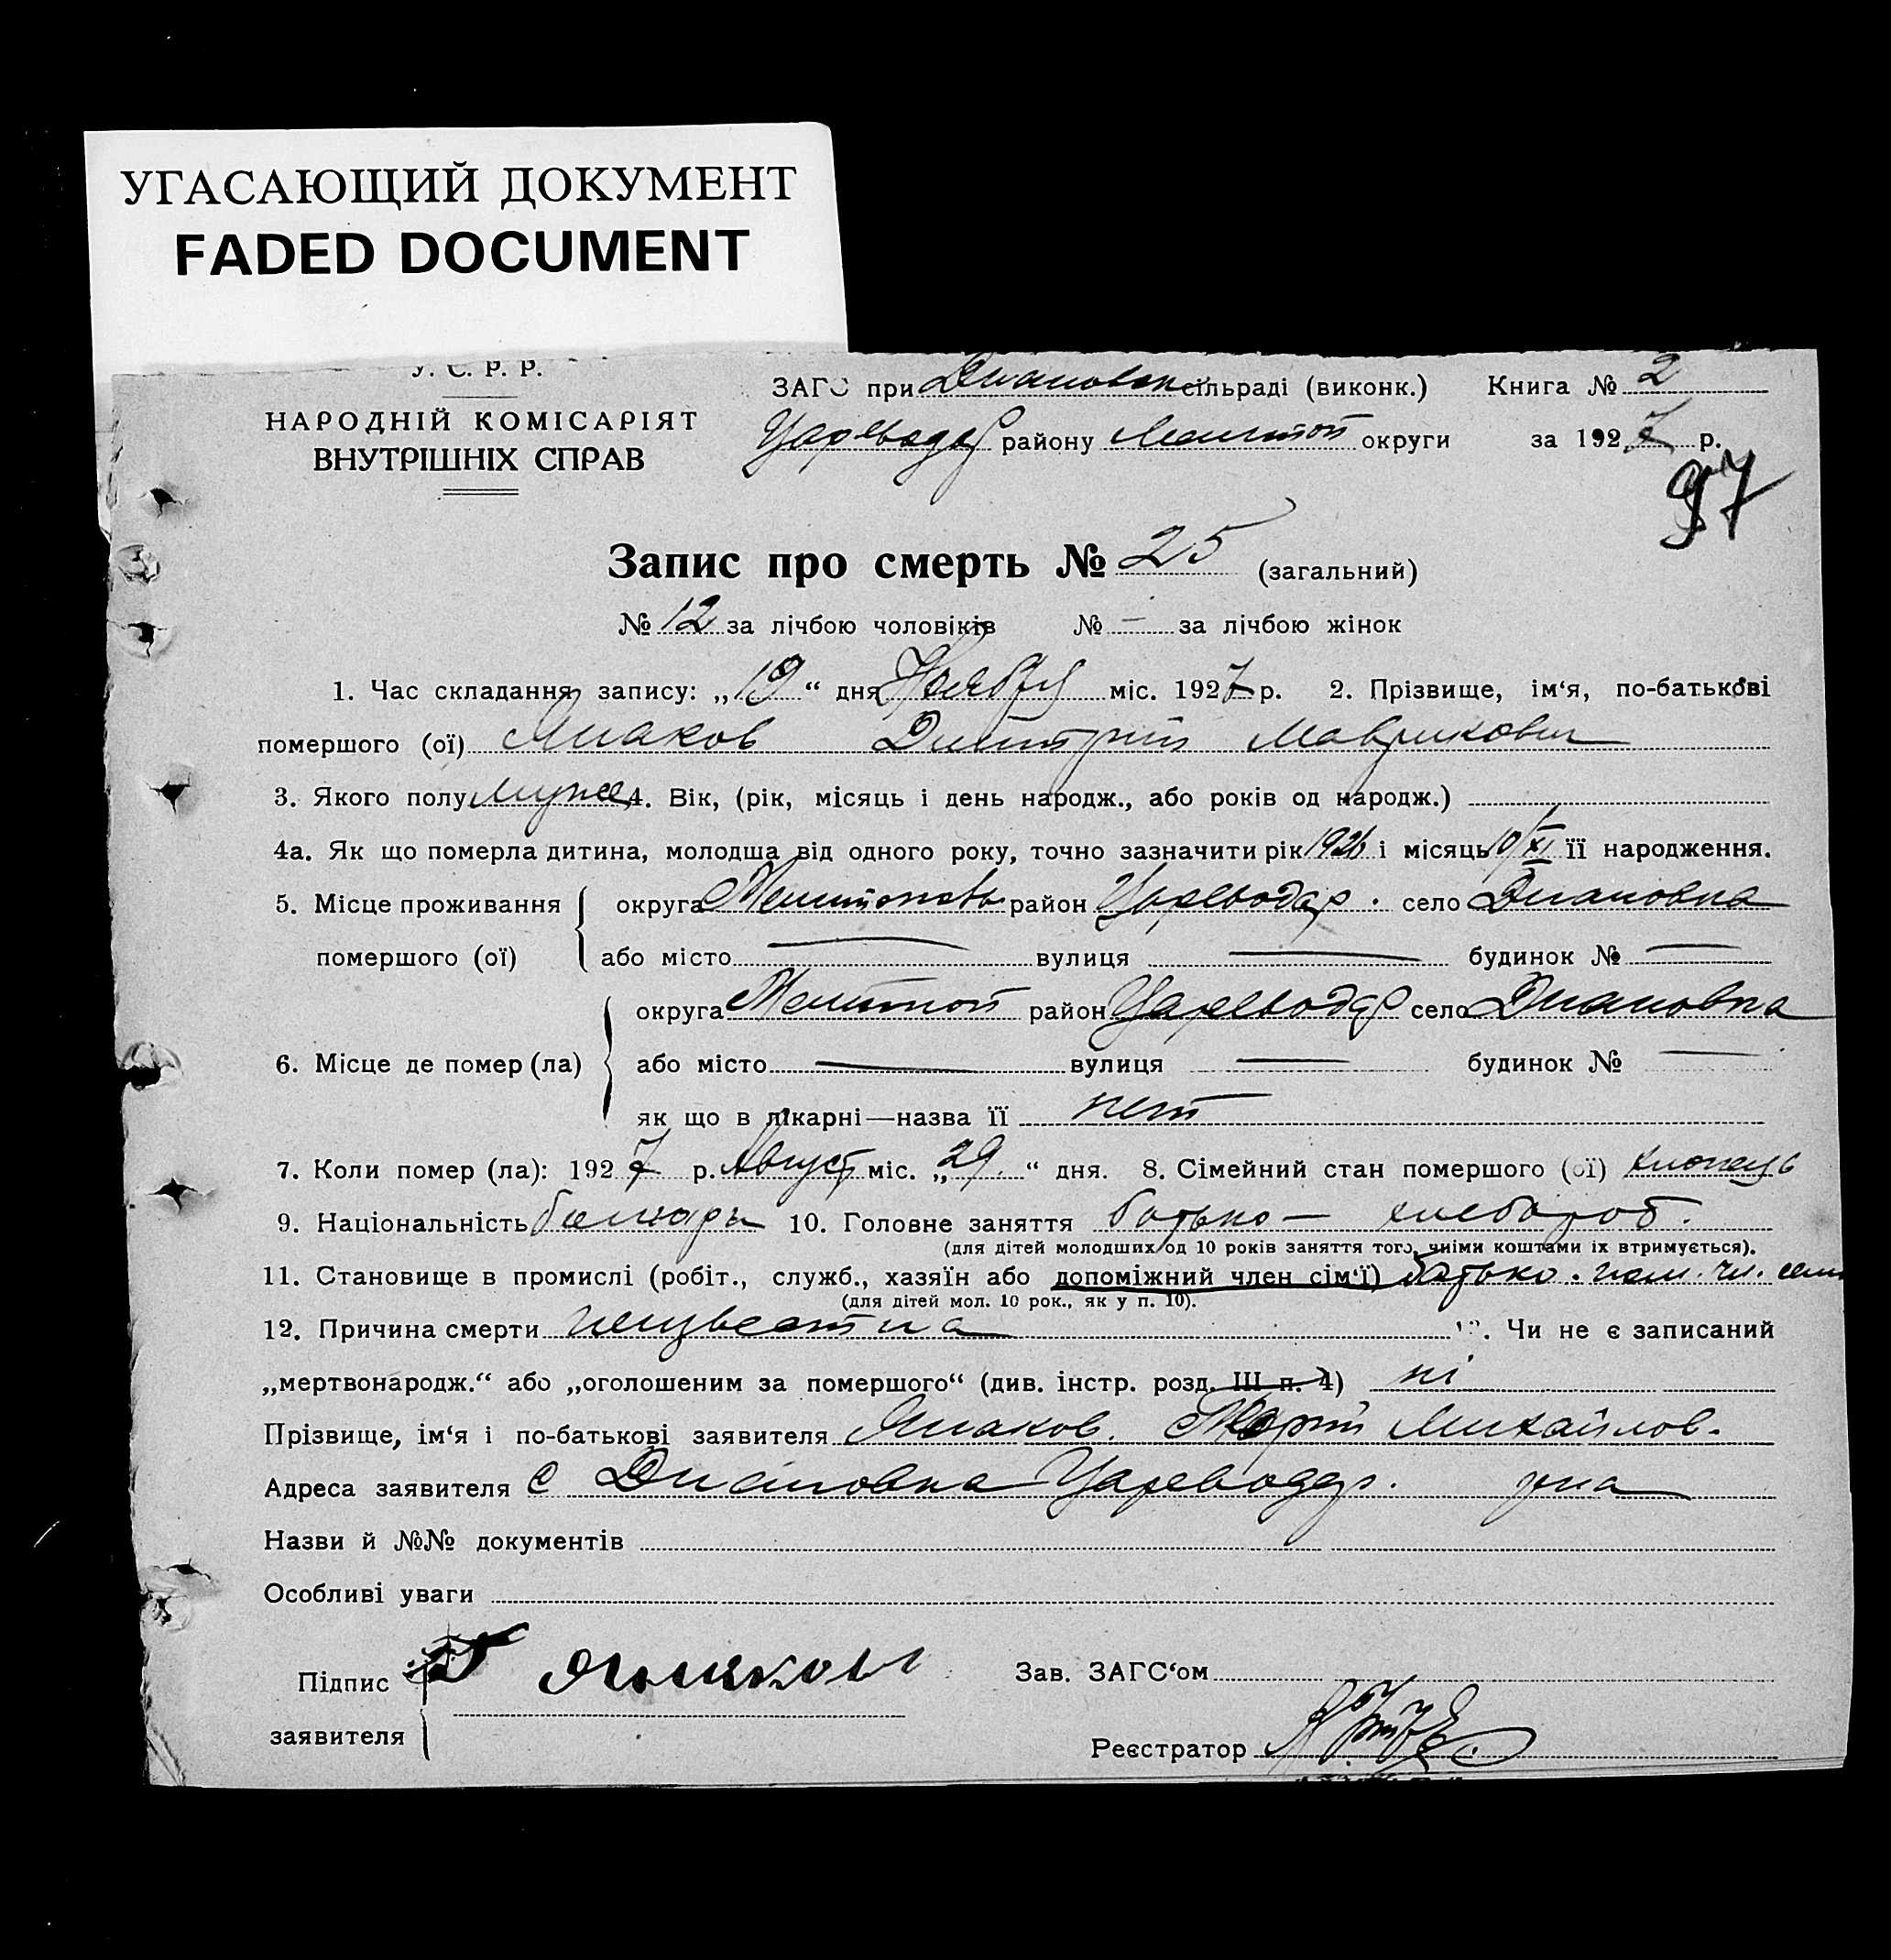 УГАСАЮЩИЙ ДОКУМЕНТ
FADED DOCUMENT
У. С. Р. Р.
НАРОДНІЙ КОМІСАРІЯТ
ВНУТРІШНІХ СПРАВ
ЗАГС при Диановск сільраді (виконк.) Книга № 2
Царевода району Мелитоп округи за 1927 р.
97
Запис про смерть № 25 (загальний)
№ 12 за лічбою чоловіків № - за лічбою жінок
1. Час складання запису: „19“ дня Ноября міс. 1927 р. 2. Прізвище, ім‘я, по-батькові
помершого (ої) Димитрий Маврикович
3. Якого полу муже 4. Вік, (рік, місяць і день народж., або років од народж.)
4а. Як що померла дитина, молодша від одного року, точно зазначити рік 1926 і місяць 10/XI її народження.
5. Місце проживання помершого (ої) округа район Цареводар. село Диановка
або місто — вулиця — будинок № —
6. Місце де помер (ла) округа Мелитоп район Цареводар село Диановка
або місто — вулиця — будинок № —
як що в лікарні—назва її нет
7. Коли помер (ла): 1927 р. Август міс. „29.“ дня. 8. Сімейний стан помершого (ої) хлопець
9. Національність болгары 10. Головне заняття батько — хлебороб.
(для дітей молодших од 10 років заняття того, чиїми коштами їх втримується).
11. Становище в промислі (робіт., служб., хазяїн або допоміжний член сім‘ї) батько. пом. чл. семи
(для дітей мол. 10 рок., як у п. 10).
12. Причина смерти неизвестна 13. Чи не є записаний
„мертвонародж.“ або „оголошеним за помершого“ (див. інстр. розд. III п. 4) ні
Прізвище, ім‘я і по-батькові заявителя Михайлов.
Адреса заявителя С Диановка Цареводар. р-на
Назви й №№ документів
Особливі уваги
Підпис заявителя
Зав. ЗАГС‘ом
Реєстратор